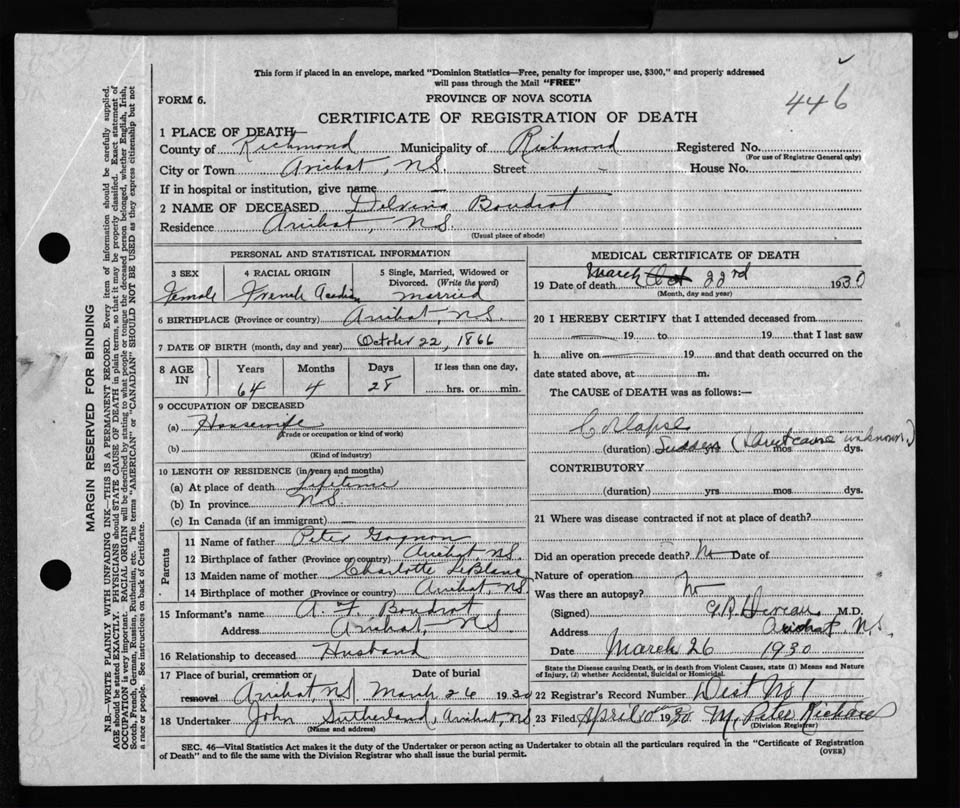 This form if placed in an envelope, marked "Dominion Statistics—Free, penalty for improper use, $300," and properly addressed
will pass through the Mail "FREE"
446
FORM 6.
PROVINCE OF NOVA SCOTIA
CERTIFICATE OF REGISTRATION OF DEATH
1 PLACE OF DEATH
County of Richmond Municipality of Richmond Registered No.
(For use of Registrar General only)
City or Town Arichat, N.S. Street House No.
If in hospital or institution, give name —
2 NAME OF DECEASED Delvina Boudrot
Residence Arichat, N.S.
(Usual place of abode)
PERSONAL AND STATISTICAL INFORMATION
3 SEX 4 RACIAL ORIGIN 5 Single, Married, Widowed or
Divorced. (Write the word)
Female French Acadian married
6 BIRTHPLACE (Province or country) Arichat, N.S.
7 DATE OF BIRTH (month, day and year) October 22, 1866
8 AGE IN Years Months Days If less than one day,
64 4 28 hrs. or min.
9 OCCUPATION OF DECEASED
(a) Housewife
(Trade or occupation or kind of work)
(b)
(Kind of industry)
10 LENGTH OF RESIDENCE (in years and months)
(a) At place of death Lifetime
(b) In province N.S.
(c) In Canada (if an immigrant)
Parents
11 Name of father Peter Gagnon
12 Birthplace of father (Province or country) Arichat, N.S.
13 Maiden name of mother Charlotte LeBlanc
14 Birthplace of mother (Province or country) Arichat, N.S.
15 Informant's name A. F. Boudrot
Address Arichat, N.S
16 Relationship to deceased Husband
17 Place of burial, cremation or Date of burial
removal Arichat, N.S March 26 1930
18 Undertaker John Sutherland, Arichat, N.S
(Name and address)
MEDICAL CERTIFICATE OF DEATH
19 Date of death March Oct 22rd 1930
(Month, day and year)
20 I HEREBY CERTIFY that I attended deceased from
19 to 19 that I last saw
h alive on 19 and that death occurred on the
date stated above, at m.
The CAUSE of DEATH was as follows:
Collapse
(duration) Sudden yrs mos dys. cause unknown.)
CONTRIBUTORY
(duration) yrs mos dys.
21 Where was disease contracted if not at place of death?
Did an operation precede death? No Date of
Nature of operation
Was there an autopsy? No
(Signed) M.D.
Address Arichat, N.S.
Date March 26 1930
State the Disease causing Death, or in death from Violent Causes, state (1) Means and Nature
of Injury, (2) whether Accidental, Suicidal or Homicidal.
22 Registrar's Record Number Dist No 1
23 Filed April 10th 1930 M. Peter Richard
(Division Registrar)
SEC. 46—Vital Statistics Act makes it the duty of the Undertaker or person acting as Undertaker to obtain all the particulars required in the "Certificate of Registration
of Death" and to file the same with the Division Registrar who shall issue the burial permit.
(OVER)
MARGIN RESERVED FOR BINDING
N.B.—WRITE PLAINLY WITH UNFADING INK—THIS IS A PERMANENT RECORD. Every item of information should be carefully supplied.
AGE should be stated EXACTLY. PHYSICIANS should STATE CAUSE OF DEATH in plain terms, so that it may be properly classified. Exact statement of
OCCUPATION is very important. RACIAL ORIGIN will be described by stating to what people or tongue the deceased person belonged, whether English, Irish,
Scotch, French, German, Russian, Ruthenian, etc. The terms "AMERICAN" or "CANADIAN" SHOULD NOT BE USED as they express citizenship but not
a race or people. See instructions on back of Certificate.